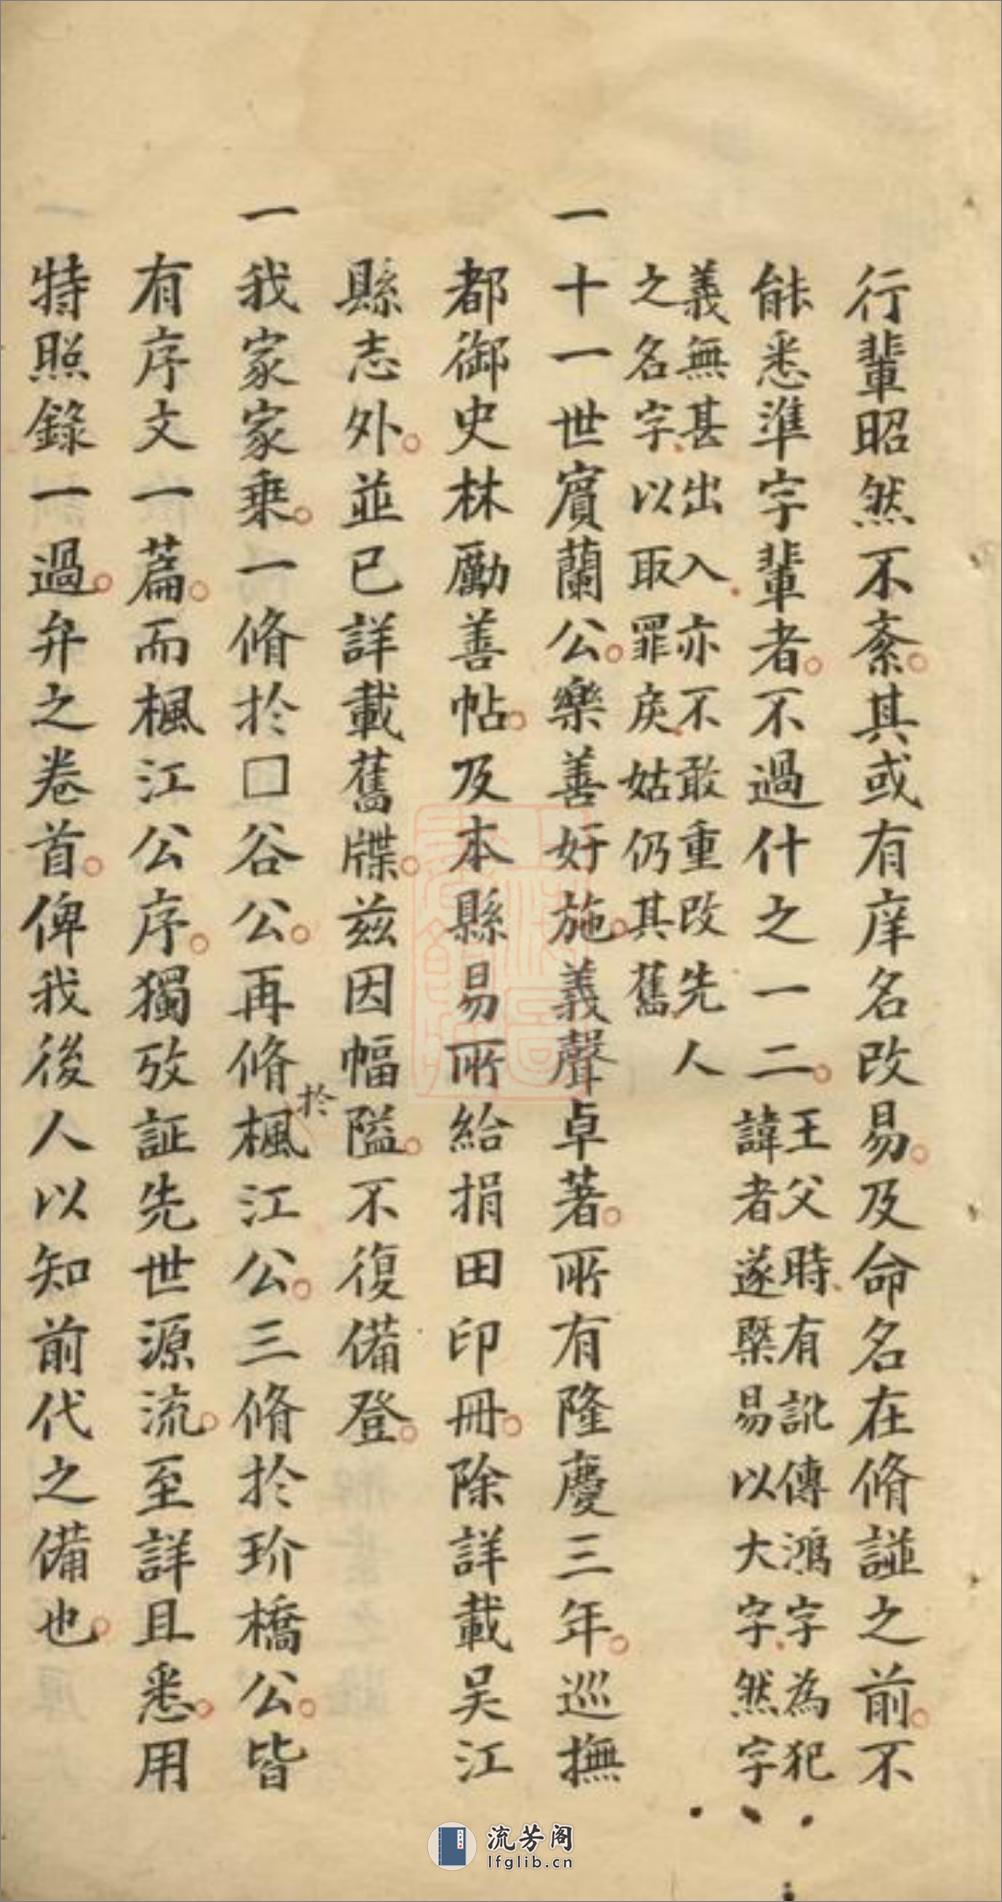 行輩昭然不紊其或有庠名改易及命名在脩譜之前不
能悉準字輩者不過什之一二王父時有訛傳鴻字為犯
諱者遂槩易以大字然字
義無甚出入亦不敢重改先人
之名字以取罪戾姑仍其舊
一十一世賓蘭公樂善好施義聲卓著所有隆慶三年巡撫
都御史林勵善帖及本縣易所給捐田印冊除詳載吳江
縣志外並已詳載舊牒兹因幅隘不復備登
一我家家乗一脩於□谷公再脩於楓江公三脩於玠橋公皆
有序文一篇而楓江公序獨攷証先世源流至詳且悉用
特照錄一過弁之卷首俾我後人以知前代之備也
流芳阁
lfglib.cn